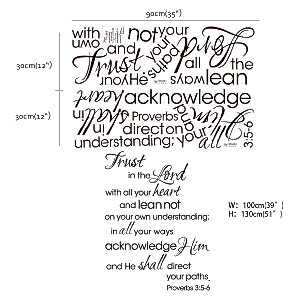 90cm(35")
with not your
own and
Trust your Lord
paths all the
your. He sways lean
30cm(12")
heart acknowledge
Proverbs in
30cm(12")
direct on your all
understanding; 3:5-6
Trust
in the Lord
with all your heart
and lean not
on your own understanding;
in all your ways
acknowledge Him
and He shall direct
your paths.
Proverbs 3:5-6
W: 100cm(39")
H: 130cm(51")